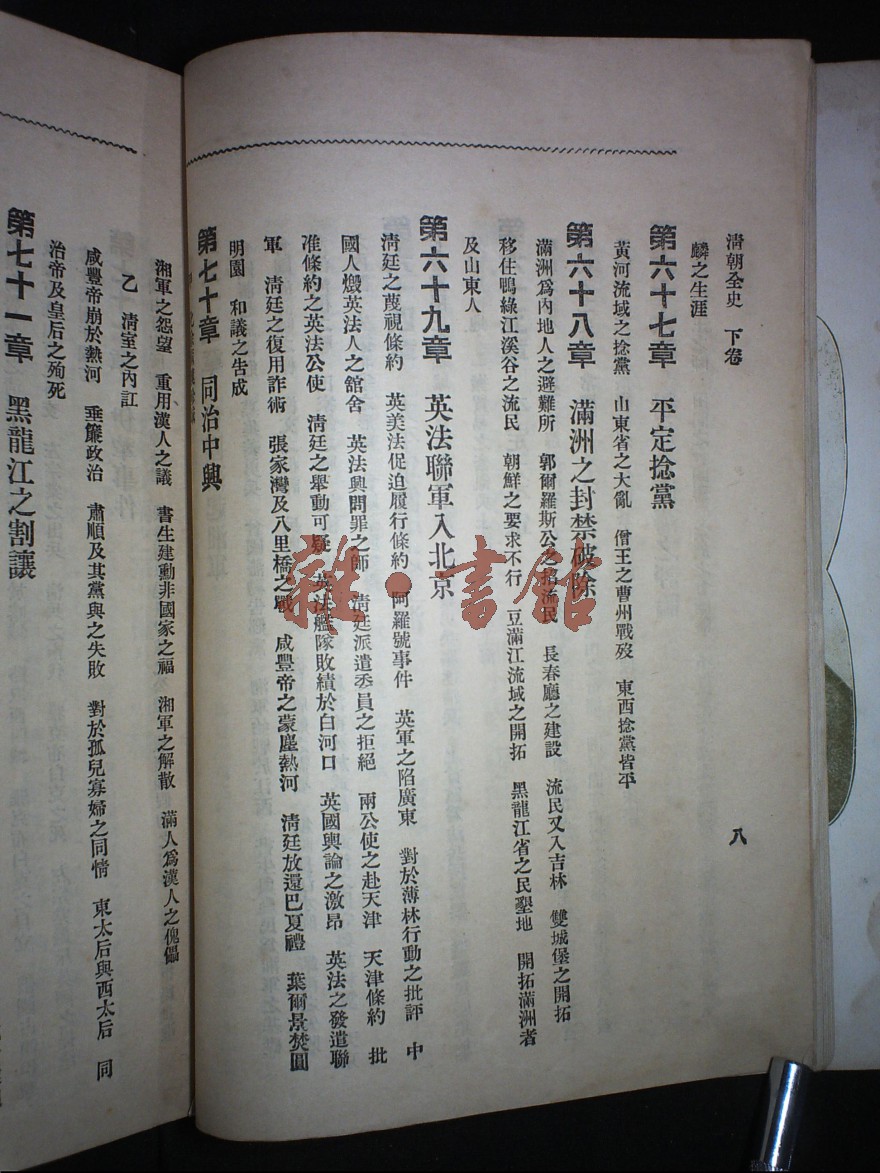 清朝全史 下卷
八
麟之生涯
第六十七章 平定捻黨
黃河流域之捻黨 山東省之大亂 僧王之曹州戰歿 東西捻黨皆平
第六十八章 滿洲之封禁破除
滿洲爲內地人之避難所 郭爾羅斯公之招流民 長春廳之建設 流民又入吉林 雙城堡之開拓
移住鴨綠江溪谷之流民 朝鮮之要求不行 豆滿江流域之開拓 黑龍江省之民墾地 開拓滿洲者
及山東人
第六十九章 英法聯軍入北京
淸廷之蔑視條約 英美法促迫履行條約 阿羅號事件 英軍之陷廣東 對於薄林行動之批評 中
國人燬英法人之舘舍 英法興問罪之師 淸廷派遣委員之拒絕 兩公使之赴天津 天津條約 批
准條約之英法公使 淸廷之舉動可疑 英法艦隊敗績於白河口 英國輿論之激昂 英法之發遣聯
軍 淸廷之復用詐術 張家灣及八里橋之戰 咸豐帝之蒙塵熱河 淸廷放還巴夏禮 葉爾景焚圓
明園 和議之告成
第七十章 同治中興
湘軍之怨望 重用漢人之議 書生建勳非國家之福 湘軍之解散 滿人爲漢人之傀儡
乙 淸室之內訌
咸豐帝崩於熱河 垂簾政治 肅順及其黨與之失敗 對於孤兒寡婦之同情 東太后與西太后 同
治帝及皇后之殉死
第七十一章 黑龍江之割讓
雜·書館